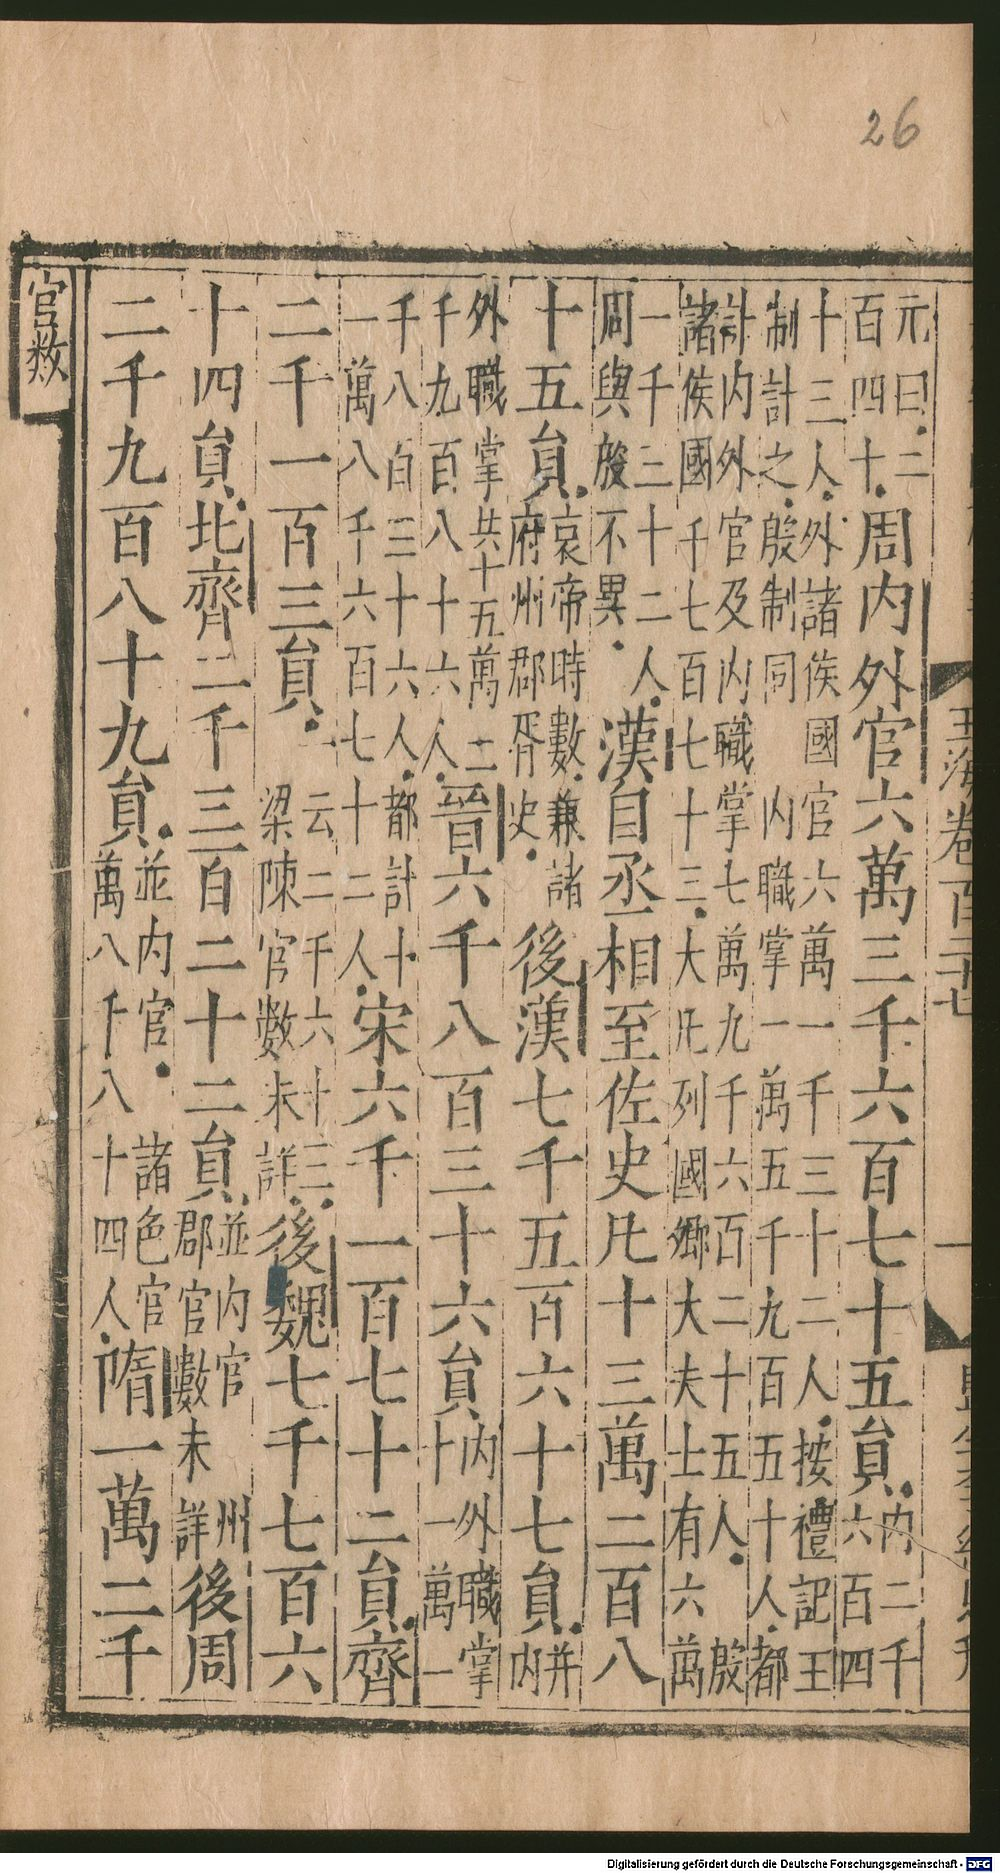 26
玉海卷百二十七
一
元曰二
百四十
周内外官六萬三千六百七十五貟
内二千
六百四
十三人外諸侯國官六萬一千三十二人按禮記王
制計之殷制同 内職掌一萬五千九百五十人都
計内外官及内職掌七萬九千六百二十五人 殷
諸侯國千七百七十三大凡列國卿大夫士有六萬
一千三十二人
周與殷不異
漢自丞相至佐史凡十三萬二百八
十五貟
哀帝時數兼諸
府州郡胥史
後漢七千五百六十七貟
并
内
外職掌共十五萬二
千九百八十六人
晉六千八百三十六貟
内外職掌
十一萬一
千八百三十六人都計十
一萬八千六百七十二人
宋六千一百七十二貟齊
二千一百三貟
云二千六十三
梁陳官數未詳
後魏七千七百六
十四貟北齊二千三百二十二貟
並内官 州
郡官數未詳
後周
二千九百八十九貟
並内官 諸色官
萬八千八十四人
隋一萬二千
官数
Digitalisierung gefördert durch die Deutsche Forschungsgemeinschaft - DFG